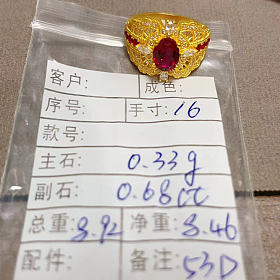 客户: 成色:
序号: 手寸: 16
款号:
主石: 0.33g
副石: 0.68ct
总重: 8.92 净重: 8.46
配件: 备注: 53D